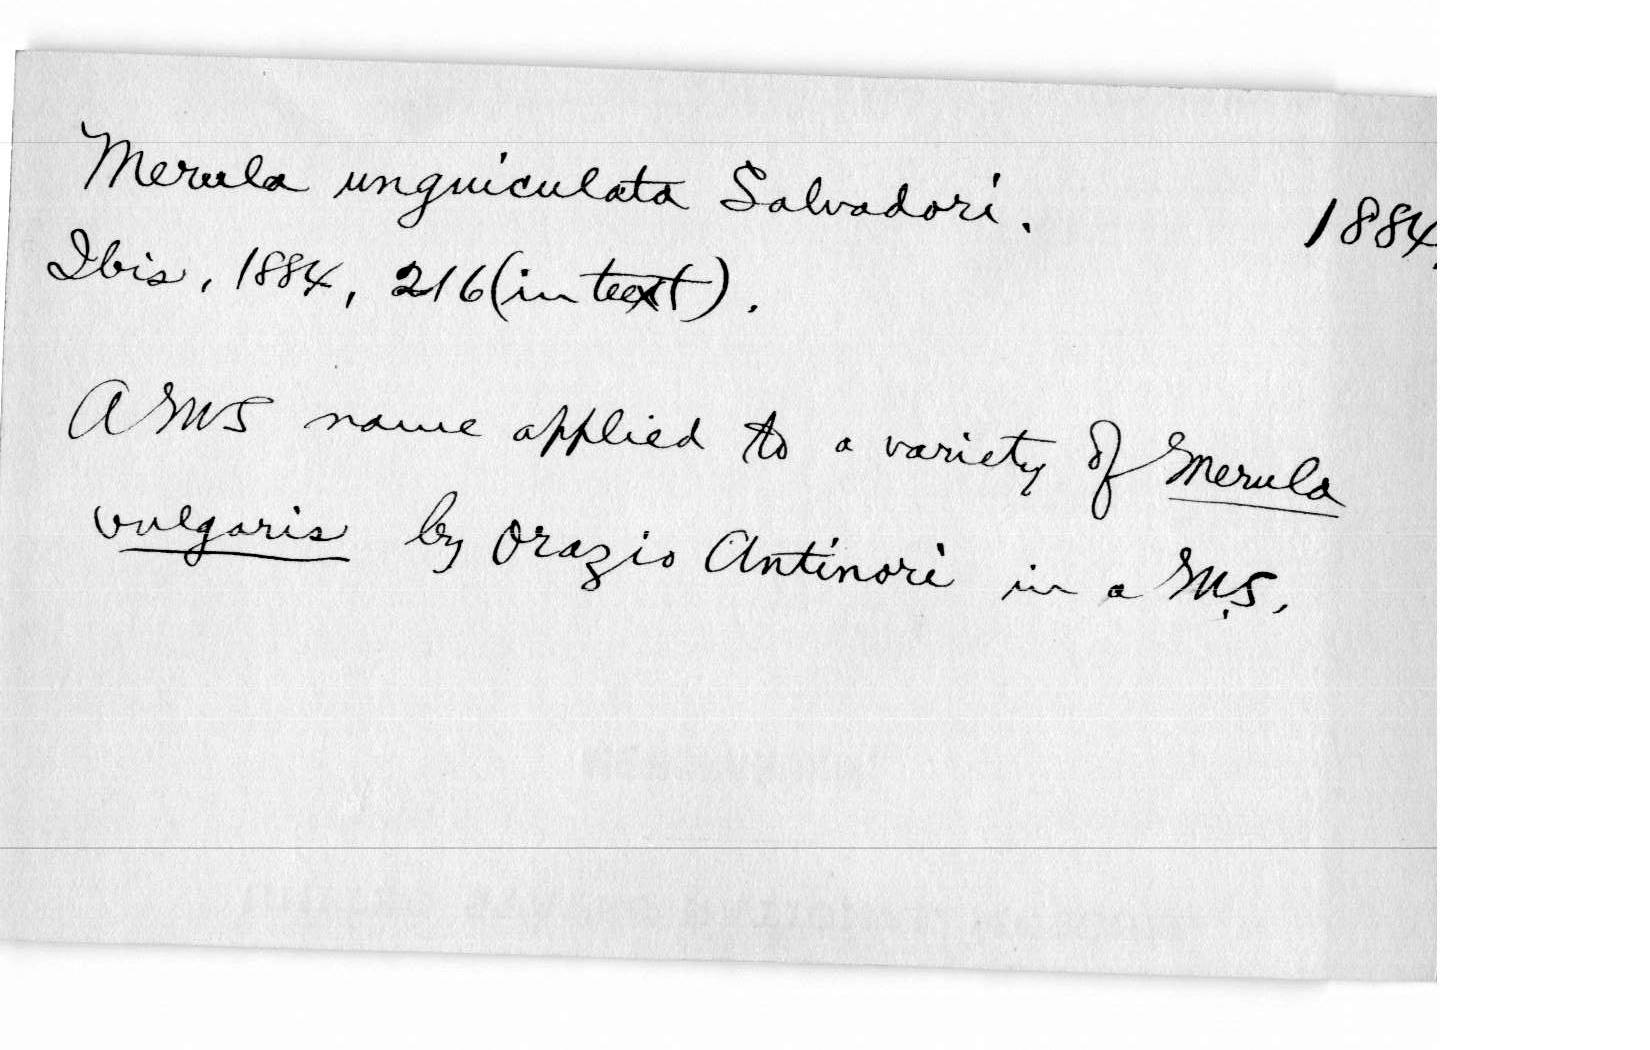 Merula unguiculata Salvadori. 1884.
Ibis, 1884, 216 (in text).
A MS name applied to a variety of Merula
vulgaris by Orazio Antinori in a MS.